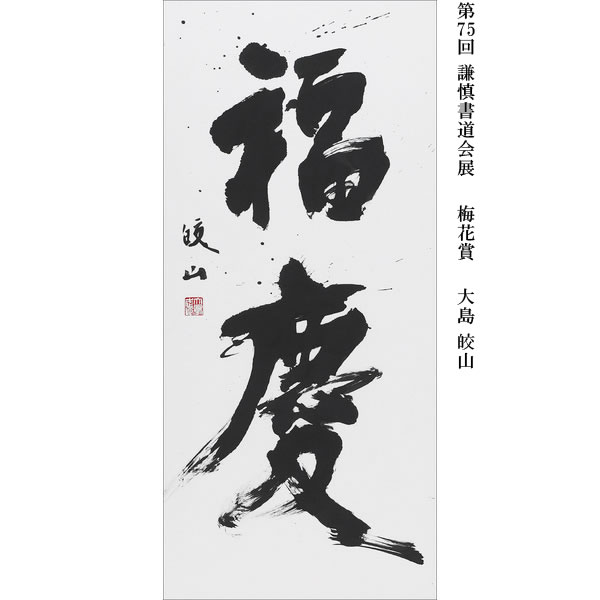 第75回 謙慎書道会展 梅花賞 大島 皎山
福慶
皎山